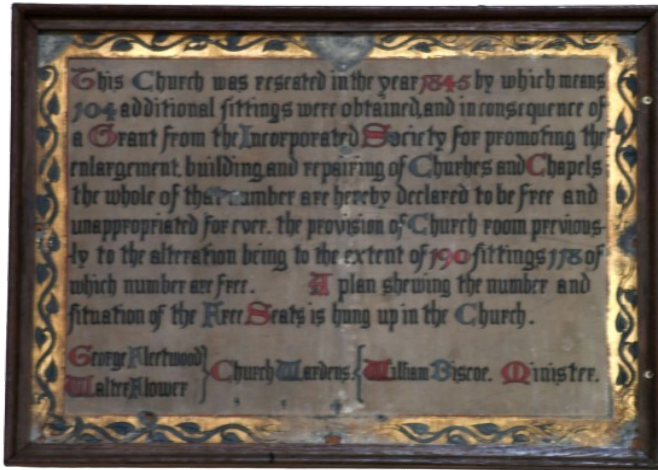 This Church was reseated in the year 1845 by which means
104 additional fittings were obtained, and in consequence of
a Grant from the Incorporated Society for promoting the
enlargement, building and repairing of Churhes and Chapels
the whole of that number are hereby declared to be free and
unappropriated for ever. the provision of Church room previous-
ly to the alteration being to the extent of 190 fittings 178 of
which number are free. A plan shewing the number and
fituation of the Free Seats is hung up in the Church.
George Fleetwood } Church Wardens. { William Biscoe. Minister.
Walter Flower